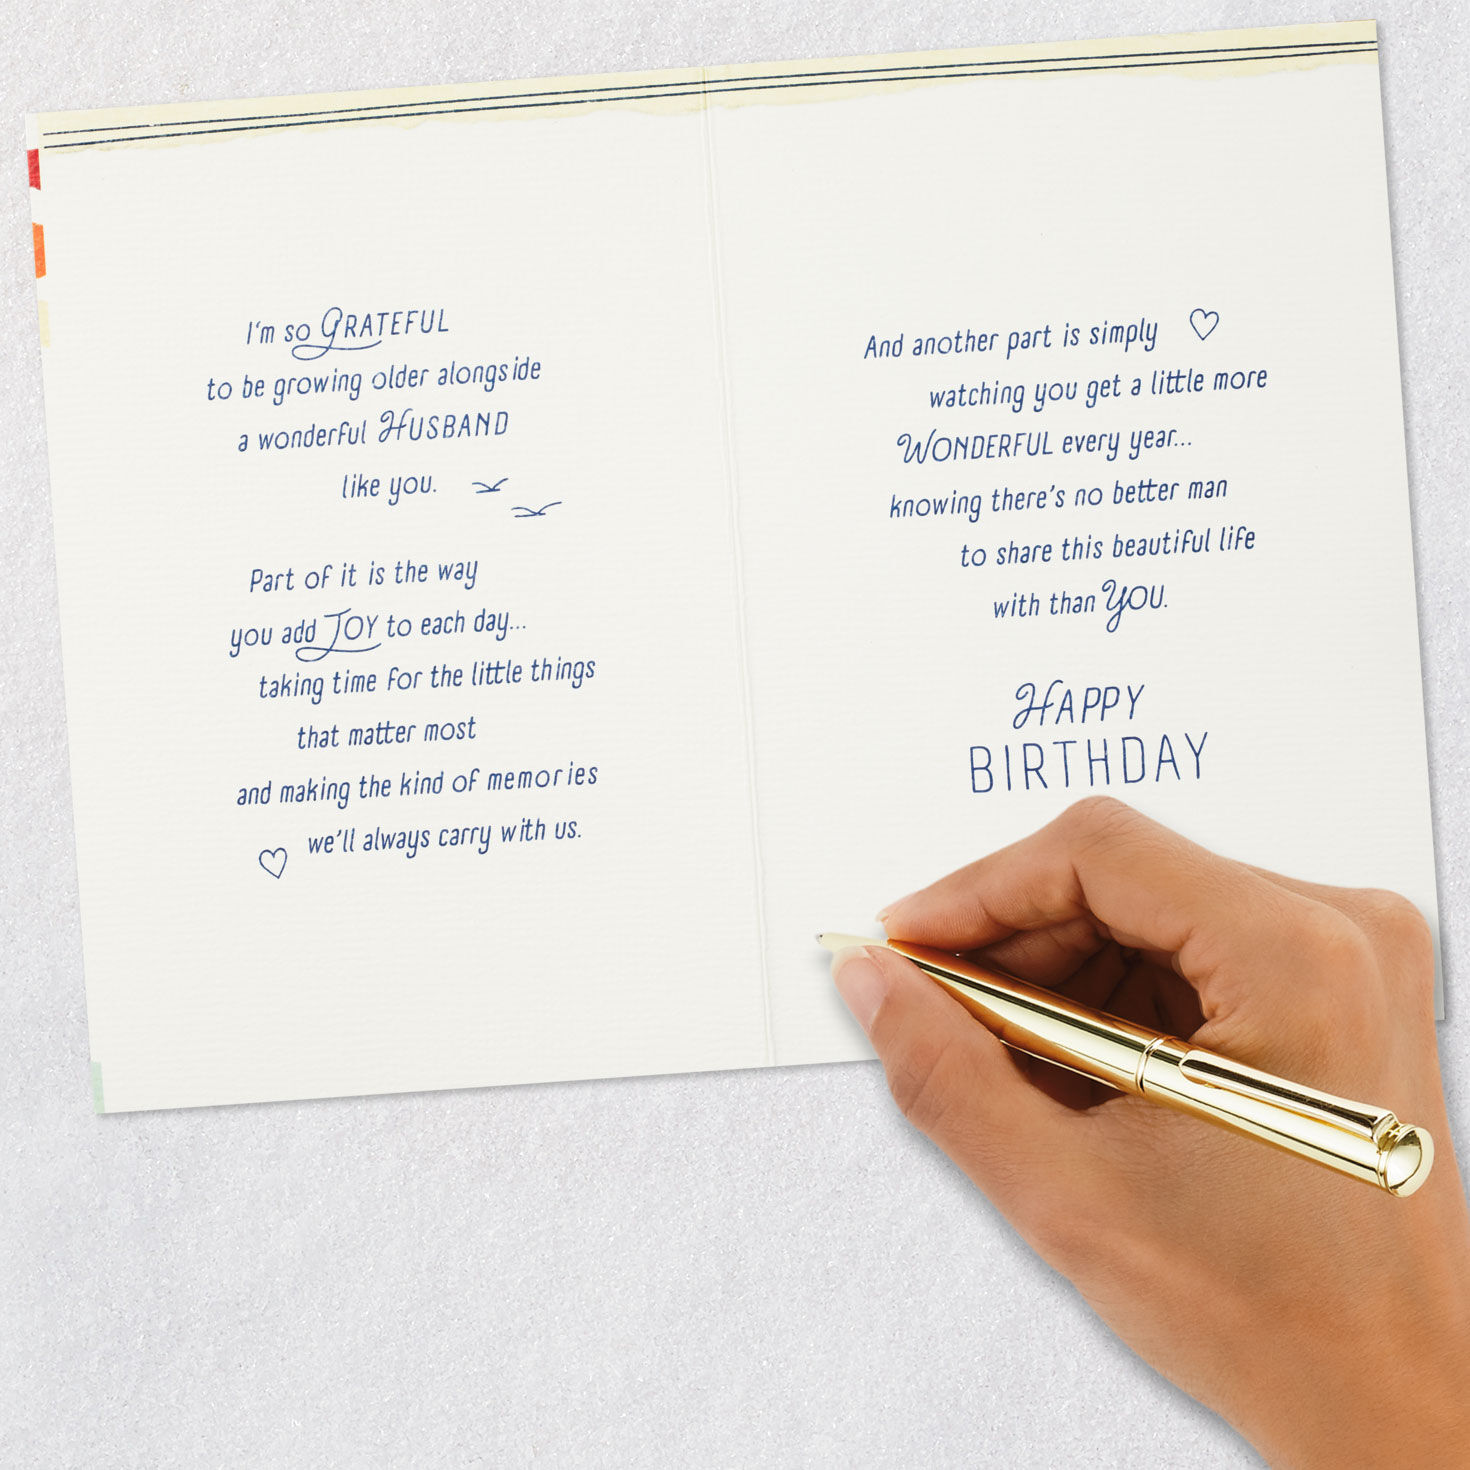 I'm so GRATEFUL
to be growing older alongside
a wonderful HUSBAND
like you.
Part of it is the way
you add JOY to each day...
taking time for the little things
that matter most
and making the kind of memories
we'll always carry with us.
And another part is simply
watching you get a little more
WONDERFUL every year...
knowing there's no better man
to share this beautiful life
with than YOU.
HAPPY
BIRTHDAY